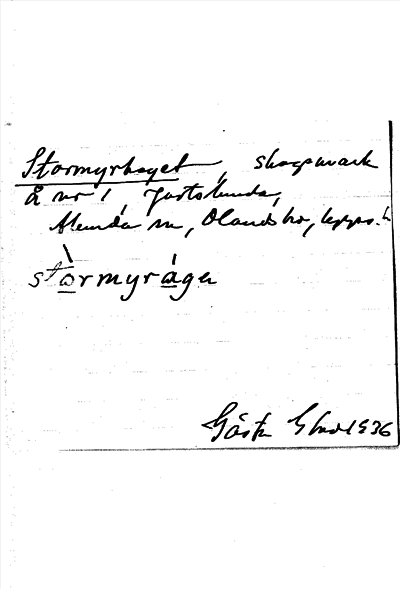 Stormyrhaget, skogsmark
å nr 1, Jortslunda,
Alunda sn, Olands hd, Upps. l.
stormyrågen
Gösta Ehnd 1936